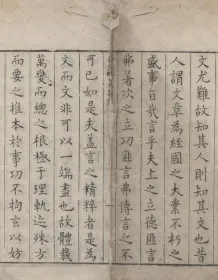 文尤難故知其人則知其文也昔
人謂文章為經國之大業不朽之
盛事旨哉言乎夫上之立德匪言
弗著次之立功匪言弗傳言之不
可已如是夫蓋言之精粹者是為
文而文非可以一端盡也故體裁
萬變而總之根極于理軌迹殊方
而要之推本於事功不拘玄以妨